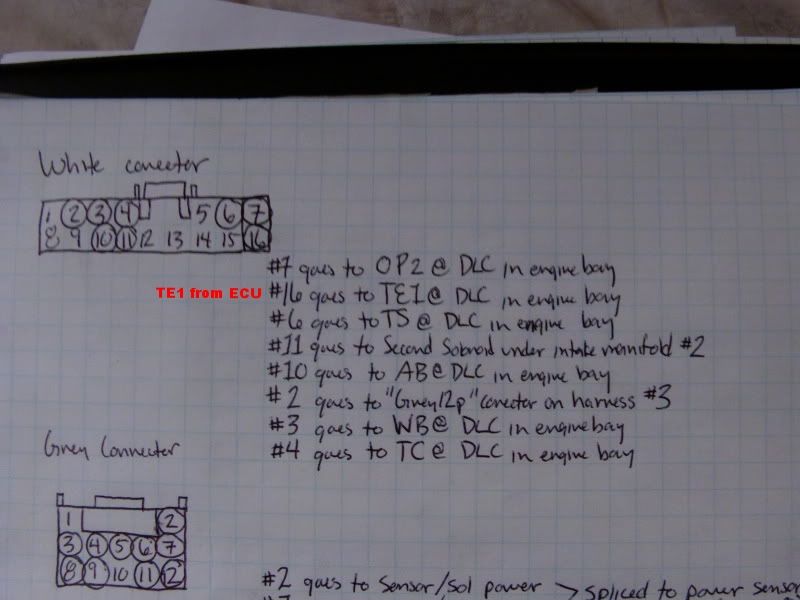 White conector
1 2 3 4 5 6 7
8 9 10 11 12 13 14 15 16
#7 goes to OP2 @ DLC in engine bay
TE1 from ECU #16 goes to TE1 @ DLC in engine bay
#6 goes to TS @ DLC in engine bay
#11 goes to Second Solonoid under intake manifold #2
#10 goes to AB @ DLC in engine bay
#2 goes to "Grey12p" conector on harness #3
#3 goes to WB @ DLC in engine bay
#4 goes to TC @ DLC in engine bay
Grey Connector
1 2
3 4 5 6 7
8 9 10 11 12
#2 goes to Sensor/Sol power > spliced to power sensor